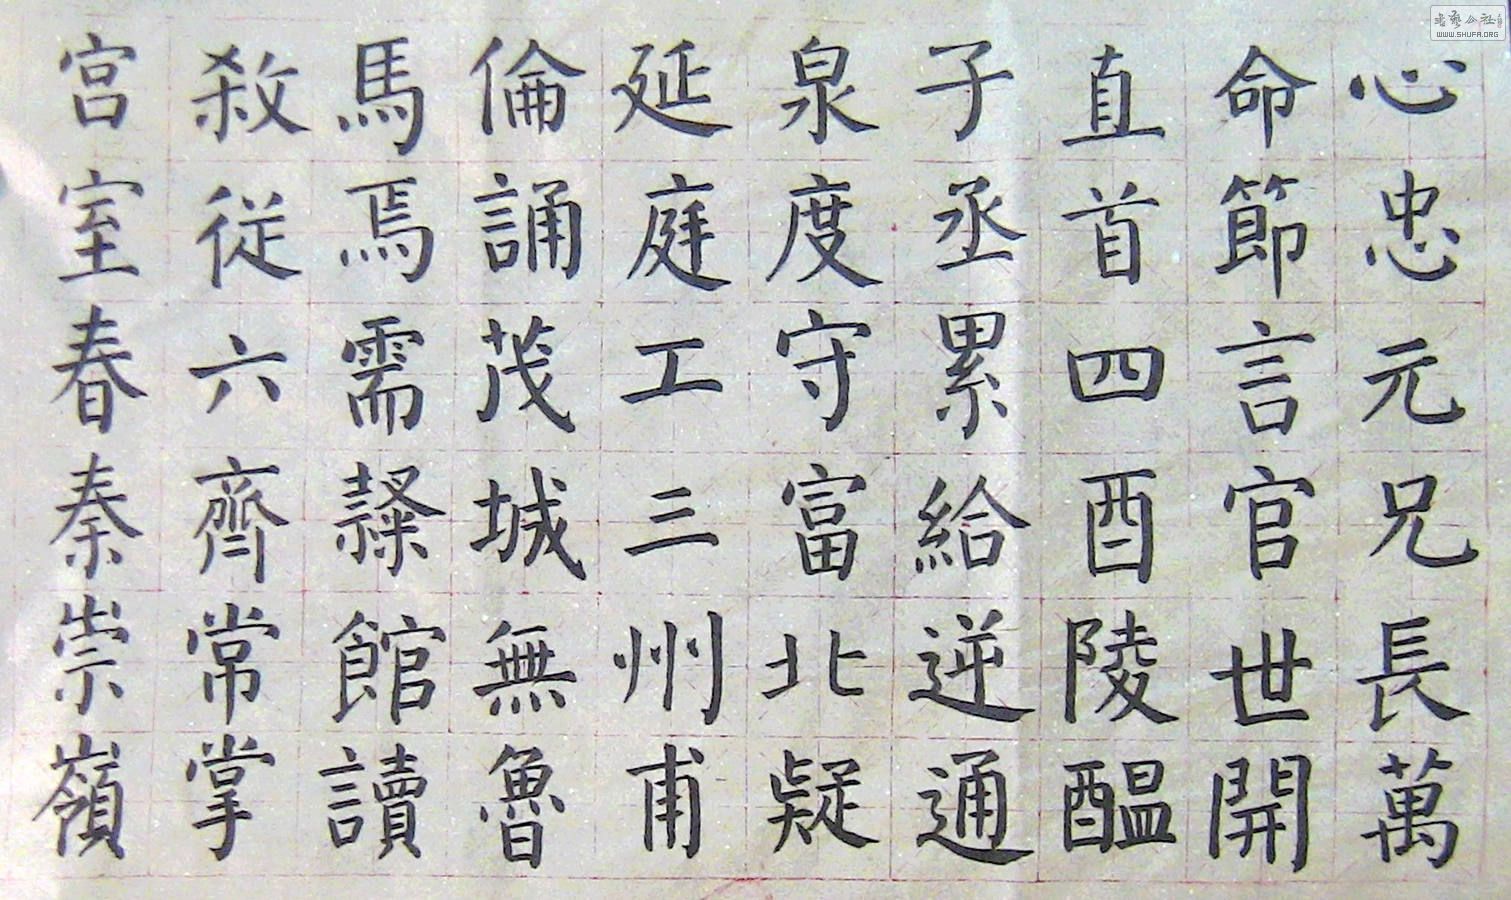 心忠元兄長萬
命節言官世開
直首四酉陵醖
子丞累給逆通
泉度守富北疑
延庭工三州甫
倫誦茂城無魯
馬焉需館讀
殺従六齊常掌
宮室春秦崇嶺
WWW.SHUFA.ORG